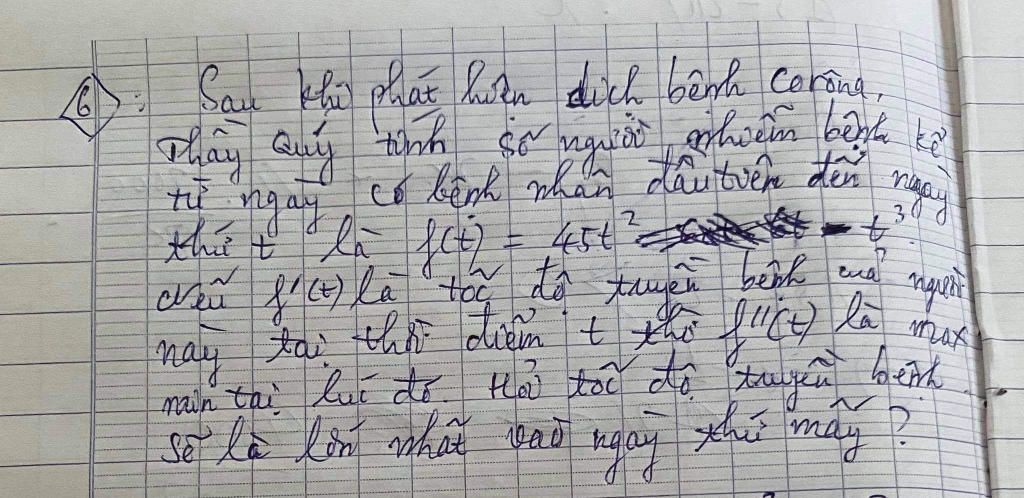 6: Sau khi phát hiện dịch bệnh Corôna,
Thầy Quý tính số người nhiễm bệnh kể
từ ngày có bệnh nhân đầu tiên đến ngày
thứ t là f(t) = 45t² - t³.
Nếu f'(t) là tốc độ truyền bệnh của người
này tại thời điểm t thì f''(t) là max
min tại lúc đó. Hỏi tốc độ truyền bệnh
sẽ là lớn nhất vào ngày thứ mấy?